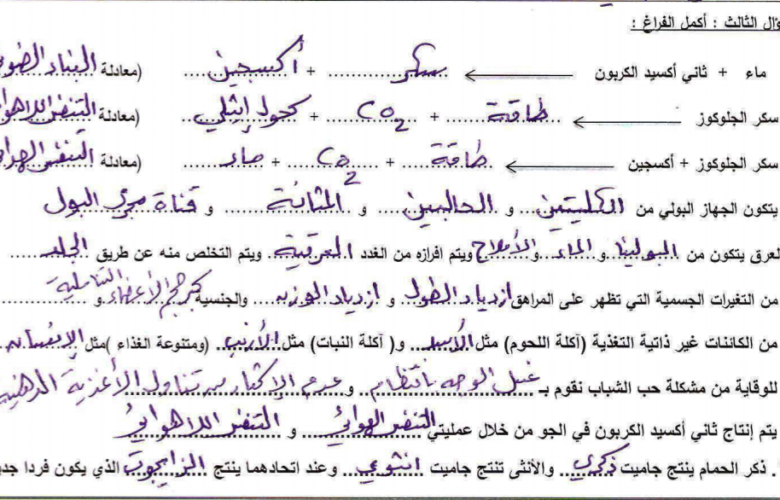 ؤال الثالث : أكمل الفراغ :
ماء + ثاني أكسيد الكربون ← سكر + أكسجين (معادلة البناء الضو
سكر الجلوكوز ← طاقة + CO2 + كحول إيثيلي (معادلة التنفس اللاهوا
سكر الجلوكوز + أكسجين ← طاقة + CO2 + ماء (معادلة التنفس الهوائ
يتكون الجهاز البولي من الكليتين و الحالبين و المثانة و قناة مجرى البول
لعرق يتكون من البولينا و الماء و الأملاح ويتم افرازه من الغدد العرقية ويتم التخلص منه عن طريق الجلد
من التغيرات الجسمية التي تظهر على المراهق ازدياد الطول و ازدياد الوزن والجنسية كبر حجم الأعضاء التناسلية و
من الكائنات غير ذاتية التغذية (آكلة اللحوم) مثل الأسد و( آكلة النبات) مثل الأرنب (ومتنوعة الغذاء )مثل الإنسان
للوقاية من مشكلة حب الشباب نقوم بـ غسل الوجه بانتظام و عدم الإكثار من تناول الأغذية الدهنية
يتم إنتاج ثاني أكسيد الكربون في الجو من خلال عمليتي التنفس الهوائي و التنفس اللاهوائي
. ذكر الحمام ينتج جاميت ذكري والأنثى تنتج جاميت انثوي وعند اتحادهما ينتج الزايجوت الذي يكون فردا جدي